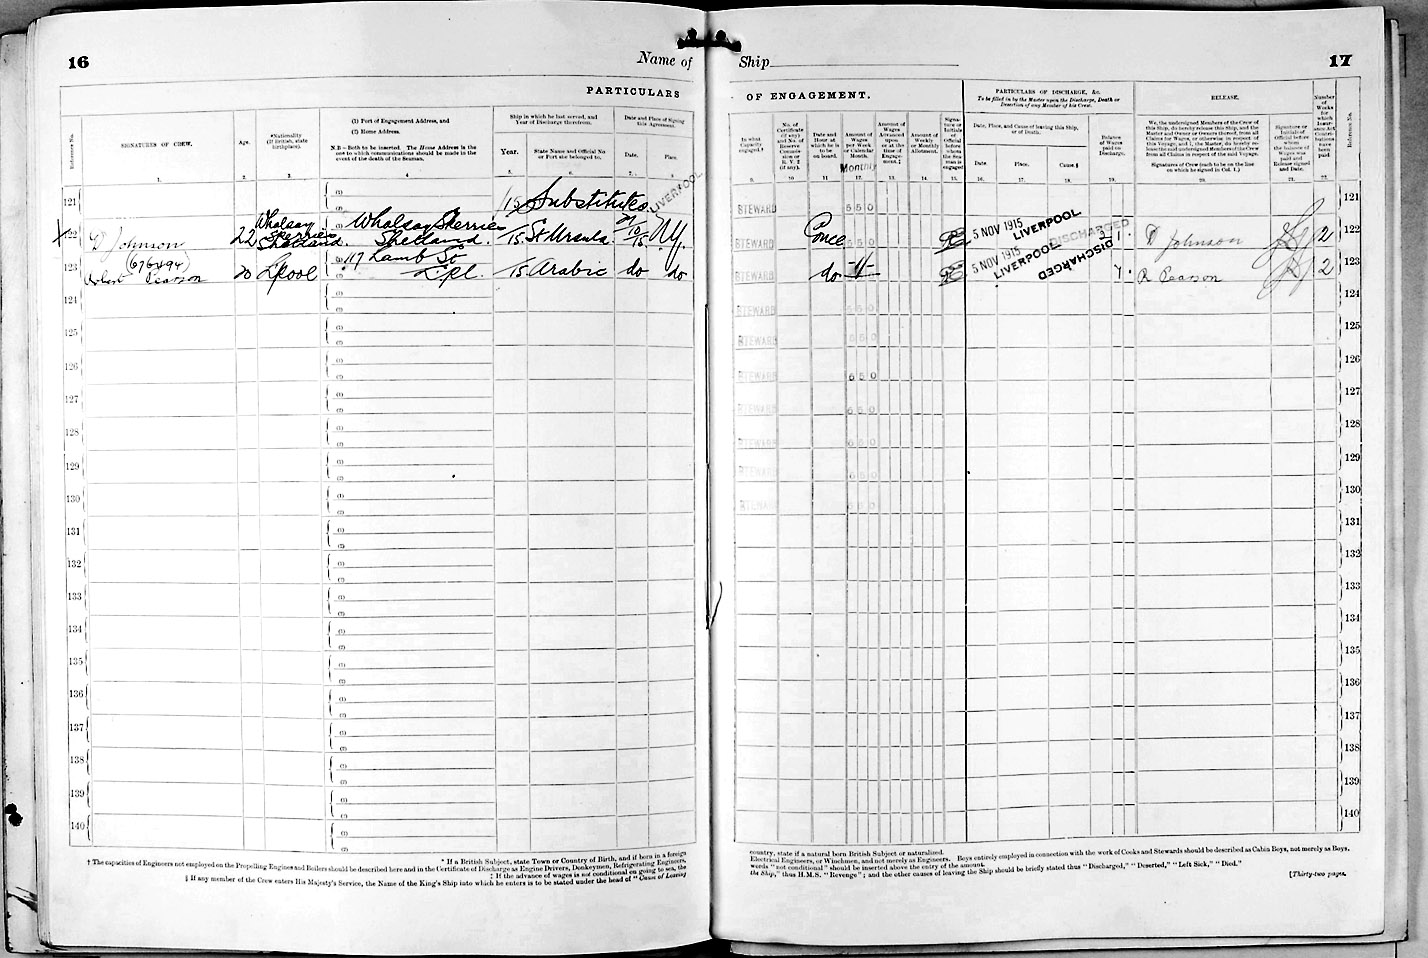 16
Name of
Ship
17
PARTICULARS
OF ENGAGEMENT.
PARTICULARS OF DISCHARGE, &c.
To be filled in by the Master upon the Discharge, Death or
Desertion of any Member of his Crew.
RELEASE.
Reference No.
SIGNATURES OF CREW.
Age.
*Nationality
(If British, state
birthplace).
(1) Port of Engagement Address, and
(2) Home Address.
N.B.—Both to be inserted. The Home Address is the
one to which communications should be made in the
event of the death of the Seaman.
Ship in which he last served, and
Year of Discharge therefrom.
Year.
State Name and Official No.
or Port she belonged to.
Date and Place of Signing
this Agreement.
Date.
Place.
In what
Capacity
engaged.†
No. of
Certificate
(if any)
and No. of
Reserve
Commis-
sion or
R. V. 2
(if any).
Date and
Hour at
which he is
to be
on board.
Amount of
Wages
per Week
or Calendar
Month.
Monthly
Amount of
Wages
Advanced
upon
or at the
time of
Engage-
ment.‡
Amount of
Weekly
or Monthly
Allotment.
Signa-
ture or
Initials
of
Official
before
whom
the Sea-
man is
engaged
Date, Place, and Cause of leaving this Ship,
or of Death.
Date.
Place.
Cause.§
Balance
of Wages
paid on
Discharge.
We, the undersigned Members of the Crew of
this Ship, do hereby release this Ship, and the
Master and Owner or Owners thereof, from all
Claims for Wages, or otherwise in respect of
this Voyage; and I, the Master, do hereby re-
lease the said undersigned Members of the Crew
from all Claims in respect of the said Voyage.
Signatures of Crew (each to be on the line
on which he signed in Col. 1.)
Signature or
Initials of
Official before
whom
the balance of
Wages was
paid and
Release signed
and Date.
Number
of
Weeks
for
which
Insur-
ance Act
Contri-
butions
have
been
paid
Reference No.
1. 2. 3. 4. 5. 6. 7. 8.
9. 10 11 12. 13. 14. 15. 16. 17. 18. 19. 20. 21. 22.
121 15 Substitutes LIVERPOOL STEWARD 5 5 0 121
122 D Johnson 22 Whalsay Skerries Shetland. Whalsay Skerries Shetland. /15 St Ursula 27/10/15 Once 5 NOV 1915 LIVERPOOL DISCHARGED D Johnson 2 122
(676494)
123 Robert Pearson 20 L'pool 117 Lamb St L'pl. /15 Arabic do do do 5 NOV 1915 LIVERPOOL DISCHARGED 7 R Pearson 2 123
124 STEWARD 5 5 0 124
125 STEWARD 5 5 0 125
126 STEWARD 5 5 0 126
127 STEWARD 5 5 0 127
128 STEWARD 5 5 0 128
129 STEWARD 5 5 0 129
130 STEWARD 5 5 0 130
131 131
132 132
133 133
134 134
135 135
136 136
137 137
138 138
139 139
140 140
* If a British Subject, state Town or Country of Birth, and if born in a foreign
country, state if a natural born British Subject or naturalized.
† The capacities of Engineers not employed on the Propelling Engines and Boilers should be described here and in the Certificate of Discharge as Engine Drivers, Donkeymen, Refrigerating Engineers,
Electrical Engineers, or Winchmen, and not merely as Engineers. Boys entirely employed in connection with the work of Cooks and Stewards should be described as Cabin Boys, not merely as Boys.
‡ If the advance of wages is not conditional on going to sea, the
words "not conditional" should be inserted above the entry of the amount.
§ If any member of the Crew enters His Majesty's Service, the Name of the King's Ship into which he enters is to be stated under the head of "Cause of Leaving
the Ship," thus H.M.S. "Revenge"; and the other causes of leaving the Ship should be briefly stated thus "Discharged," "Deserted," "Left Sick," "Died."
[Thirty-two pages.